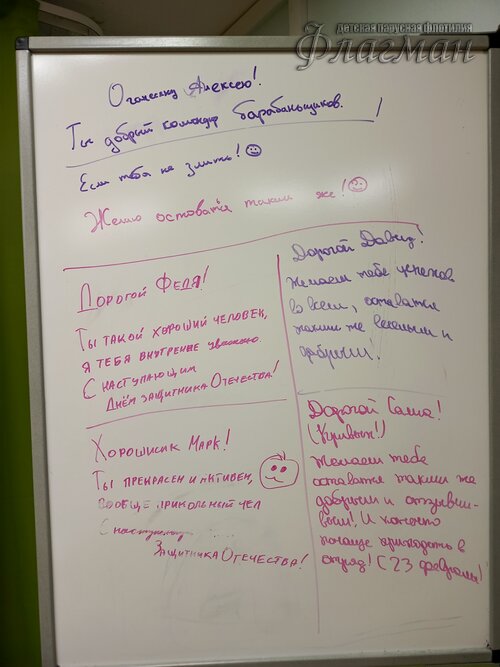 детская парусная флотилия
Флагман
Оганесяну Алексею!
Ты добрый командир барабаньщиков.
Если тебя не злить!
Желаю остоватся таким же!
Дорогой Федя!
Ты такой хороший человек,
я тебя внутренне уважаю.
С наступающим
Днём защитника Отечества!
Дорогой Давид!
Желаем тебе успехов
во всем, оставатся
таким же веселым и
добрым!
Хорошисик Марк!
Ты прекрасен и активен,
вообще прикольный чел
С наступ
Защитника Отечества!
Дорогой Саша!
Желаем тебе
оставатся таким же
добрым и отзывчи-
вым! И конечно
почаще приходить в
отряд! (С 23 февралём)